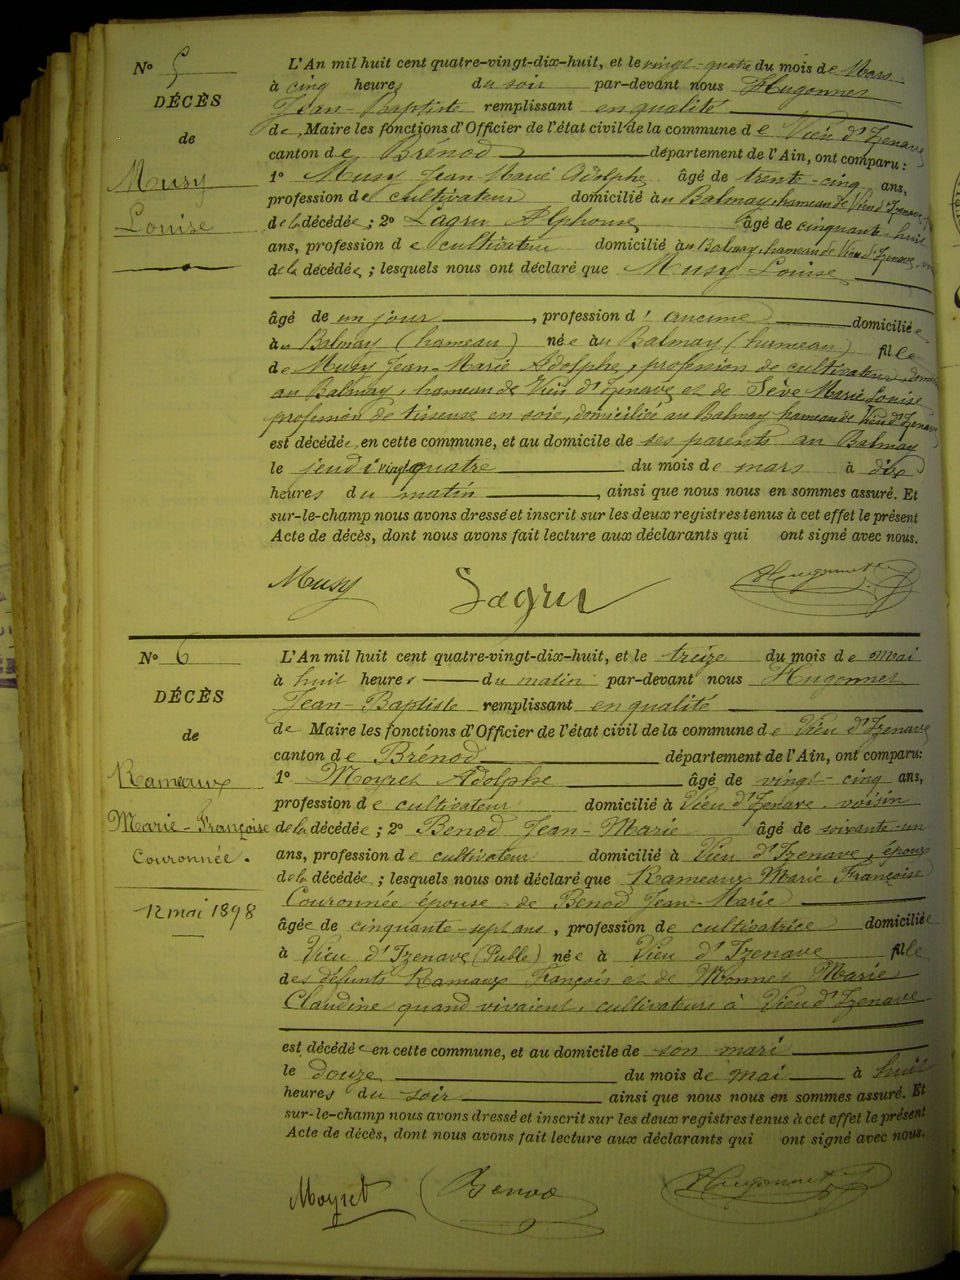 N° 5
DÉCÈS
de
Musy
Louise
L'An mil huit cent quatre-vingt-dix-huit, et le vingt-quatre du mois de Mars
à cinq heures du soir par-devant nous Hugonnet
Jean-Baptiste remplissant en qualité
de Maire les fonctions d'Officier de l'état civil de la commune de Vieu d'Izenave
canton de Brénod département de l'Ain, ont comparu :
1° Musy Jean Marie Adolphe âgé de trente-cinq ans,
profession de cultivateur domicilié au Balmay, hameau de Vieu d'Izenave,
de la décédée ; 2° Lagru Alphonse âgé de cinquante-huit
ans, profession de cultivateur domicilié au Balmay, hameau de Vieu d'Izenave,
de la décédée ; lesquels nous ont déclaré que Musy Louise
âgé de un jour, profession d' aucune domiciliée
au Balmay (hameau) née au Balmay (hameau) fille
de Musy Jean-Marie Adolphe, profession de cultivateur
au Balmay, hameau de Vieu d'Izenave et de Sève Marie Louise
profession de tisseuse en soie, domiciliée au Balmay hameau de Vieu d'Izenave
est décédée, en cette commune, et au domicile de ses parents au Balmay
le jeudi vingt quatre du mois de mars à dix
heures du matin, ainsi que nous nous en sommes assuré. Et
sur-le-champ nous avons dressé et inscrit sur les deux registres tenus à cet effet le présent
Acte de décès, dont nous avons fait lecture aux déclarants qui ont signé avec nous.
Musy Lagru Hugonnet
N° 6
DÉCÈS
de
Rameaux
Marie-Françoise
Couronnée.
12 mai 1898
L'An mil huit cent quatre-vingt-dix-huit, et le treize du mois de mai
à huit heures du matin par-devant nous Hugonnet
Jean-Baptiste remplissant en qualité
de Maire les fonctions d'Officier de l'état civil de la commune de Vieu d'Izenave
canton de Brénod département de l'Ain, ont comparu:
1° Moyret Adolphe âgé de vingt-cinq ans,
profession de cultivateur domicilié à Vieu d'Izenave, voisin
de la décédée ; 2° Benod Jean-Marie âgé de soixante-un
ans, profession de cultivateur domicilié à Vieu d'Izenave, époux
de la décédée ; lesquels nous ont déclaré que Rameaux Marie Françoise
Couronnée épouse de Benod Jean-Marie
âgée de cinquante-sept ans, profession de cultivatrice domiciliée
à Vieu d'Izenave (Puble) née à Vieu d'Izenave fille
des défunts Ramaux François et de Monnet Marie
Claudine quand vivaient, cultivateurs à Vieu d'Izenave
est décédée en cette commune, et au domicile de son mari
le douze du mois de mai à huit
heures du soir ainsi que nous nous en sommes assuré. Et
sur-le-champ nous avons dressé et inscrit sur les deux registres tenus à cet effet le présent
Acte de décès, dont nous avons fait lecture aux déclarants qui ont signé avec nous.
Moyret Benod Hugonnet